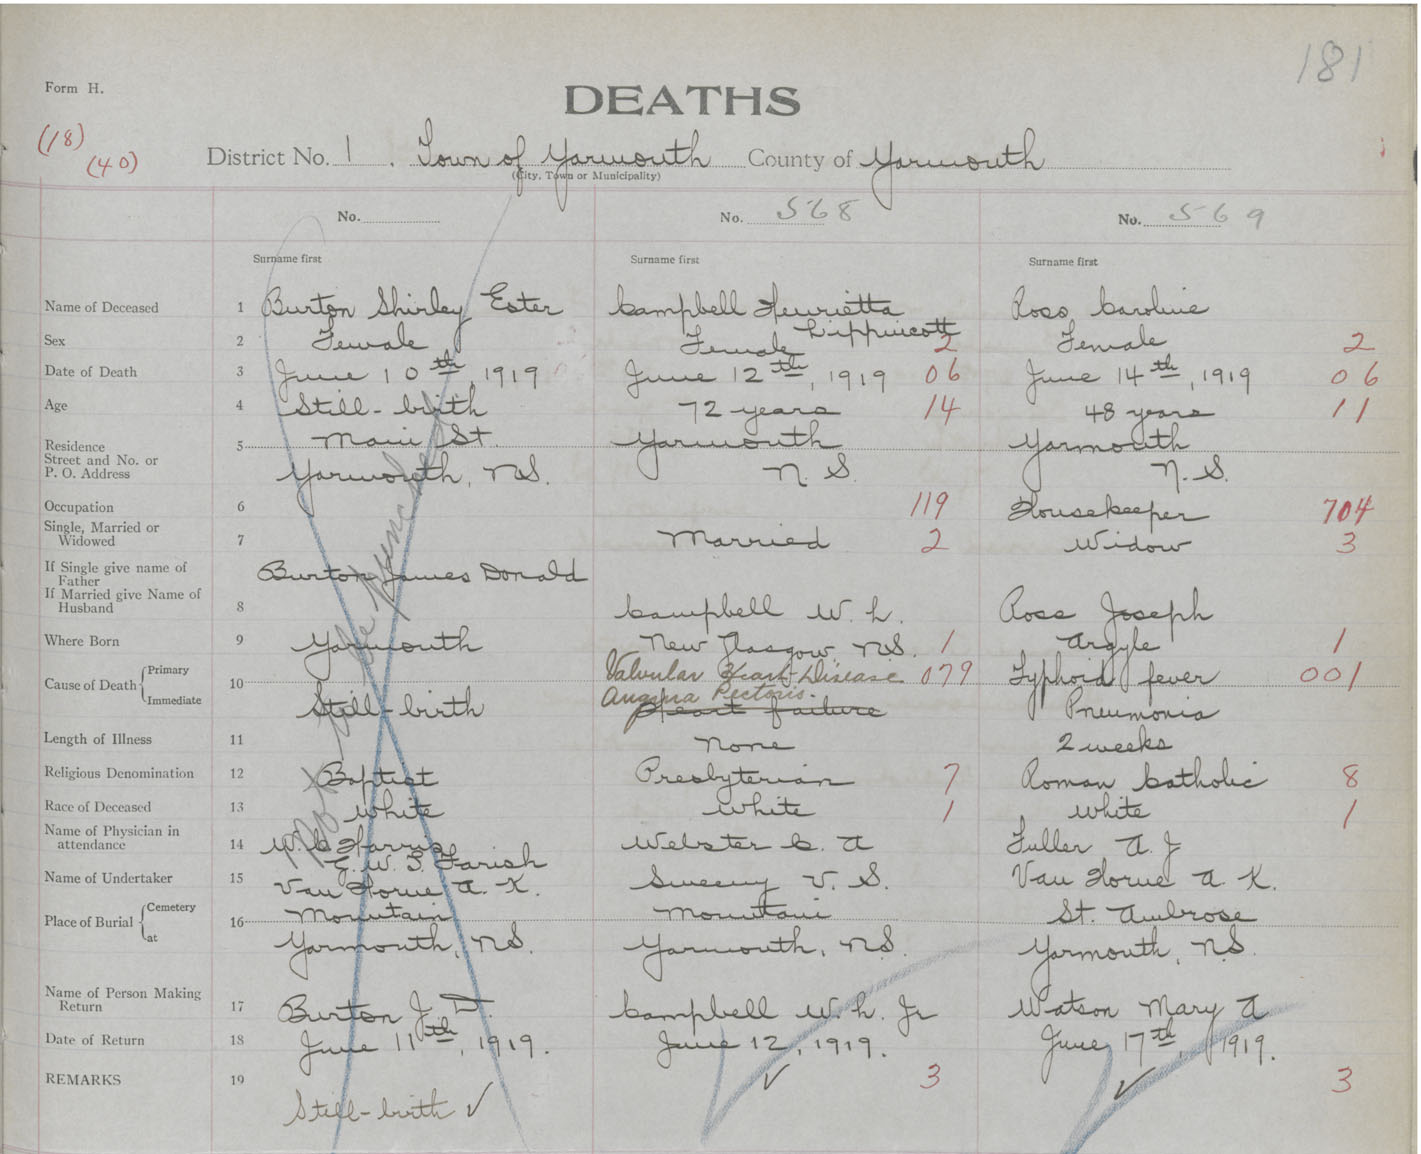 181
Form H.
DEATHS
(18)
(40)
District No. 1. Town of Yarmouth County of Yarmouth
(City, Town or Municipality)
No. No. 568 No. 569
Surname first Surname first Surname first
Name of Deceased 1 Burton Shirley Ester Campbell Henrietta Ross Caroline
Lippincott
Sex 2 Female Female 2 Female 2
Date of Death 3 June 10th, 1919 June 12th, 1919 06 June 14th, 1919 06
Age 4 Still-birth 72 years 14 48 years 11
Residence 5 Main St. Yarmouth Yarmouth
Street and No. or
P. O. Address Yarmouth, N.S. N. S. N. S.
Occupation 6 119 Housekeeper 704
Single, Married or
Widowed 7 Married 2 Widow 3
If Single give name of
Father Burton James Donald
If Married give Name of
Husband 8 Campbell W. L. Ross Joseph
Where Born 9 Yarmouth New Glasgow, N.S. 1 Argyle 1
Cause of Death Primary 10 Valvular Heart Disease 079 Typhoid fever 001
Angina Pectoris.
Immediate Still-birth Heart failure Pneumonia
Length of Illness 11 none 2 weeks
Religious Denomination 12 Baptist Presbyterian 7 Roman Catholic 8
Race of Deceased 13 White White 1 White 1
Name of Physician in
attendance 14 W. C. Harris Webster C. A Fuller A. J
E. W. S. Farish
Name of Undertaker 15 Van Horne A. K. Sweeny V. S. Van Horne A. K.
Place of Burial Cemetery 16 Mountain Mountain St. Ambrose
at Yarmouth, N.S. Yarmouth, N.S. Yarmouth, N.S.
Name of Person Making
Return 17 Burton J. D. Campbell W. L. Jr Watson Mary A
Date of Return 18 June 11th, 1919. June 12, 1919. June 17th, 1919.
REMARKS 19 ✓ 3 ✓ 3
Still-birth ✓
Not to be